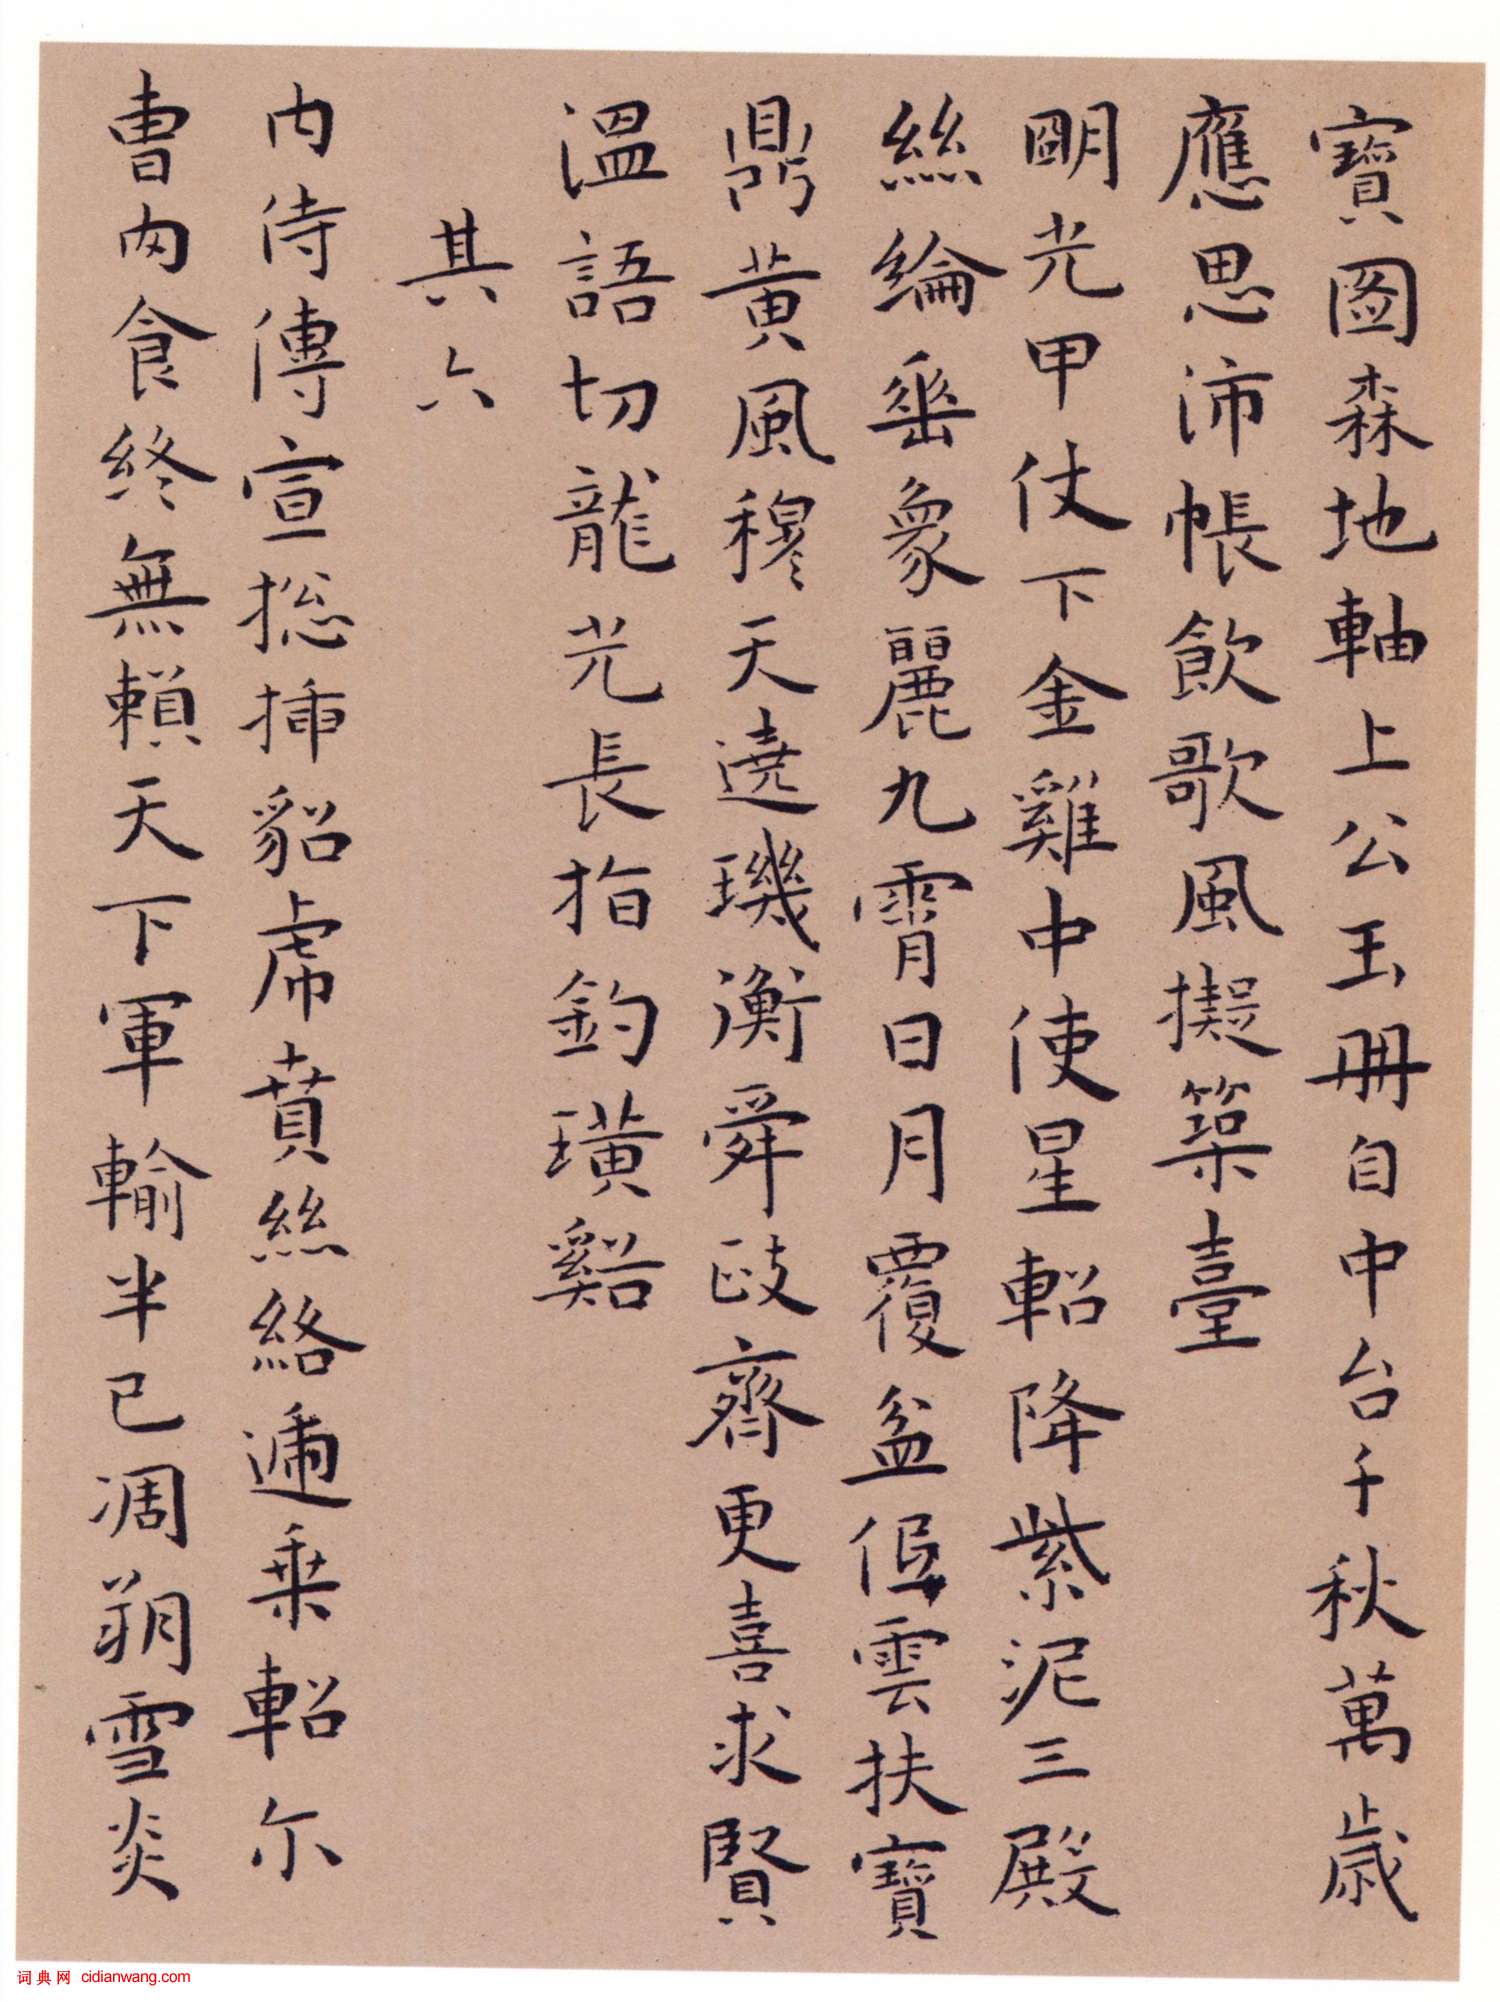 寶圖森地軸上公玉冊自中台千秋萬歲
應思沛帳飲歌風擬築臺
朙光甲仗下金雞中使星軺降紫泥三殿
絲綸垂象麗九霄日月覆盆低雲扶寶
鼎黃風穆天遶璣衡舜政齊更喜求賢
溫語切龍光長指釣璜谿
其六
內侍傳宣捴挿貂虎賁絲絡遞乘軺尔
曹肉食終無賴天下軍輸半已凋朔雪炎
词典网 cidianwang.com